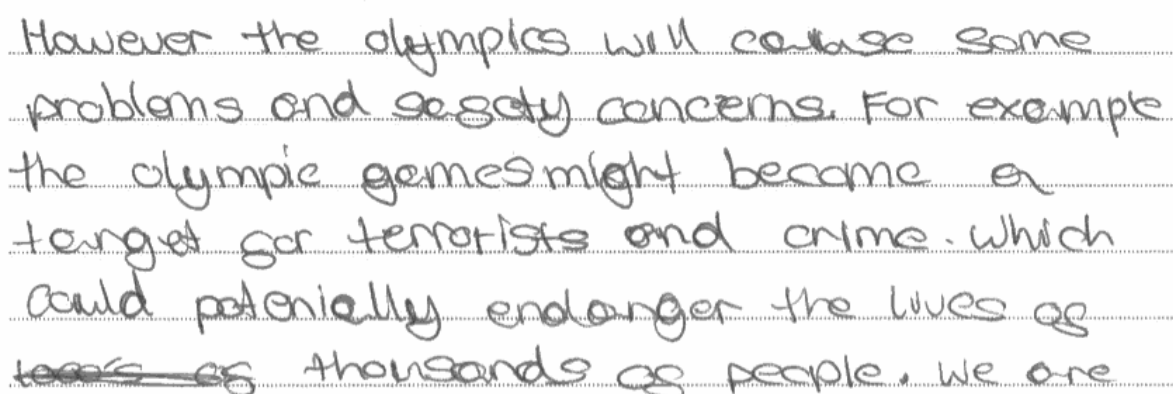 However the olympics will cause some
problems and safety concerns. For example
the olympic games might become a
target for terrorists and crime. Which
could potenially endanger the lives of
thousands of people. We are